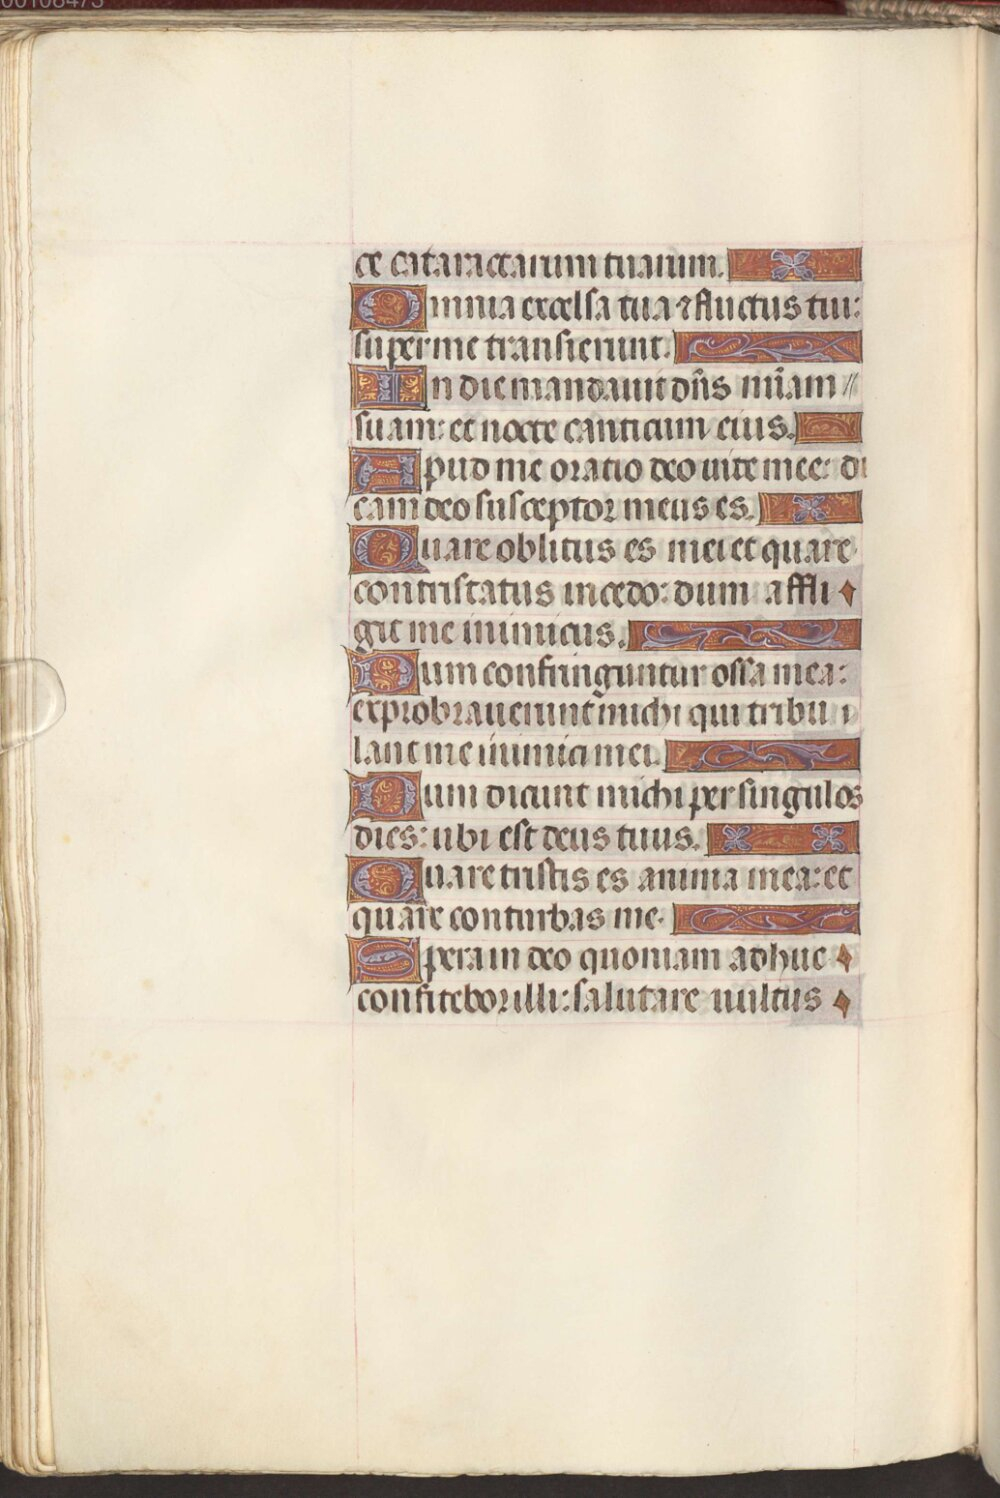 00108473
ce cataractarum tuarum.
Omnia excelsa tua ⁊ fluctus tui:
super me transierunt.
In die mandauit dn̄s mīam //
suam: et nocte canticum eius.
Apud me oratio deo uite mee: di
cam deo susceptor meus es.
Quare oblitus es mei et quare
contristatus incedo: dum affli
git me inimicus.
Dum confringuntur ossa mea:
exprobrauerunt michi qui tribu
lant me inimici mei.
Dum dicunt michi per singulos
dies: ubi est deus tuus.
Quare tristis es anima mea: et
quare conturbas me.
Spera in deo quoniam adhuc
confitebor illi: salutare uultus